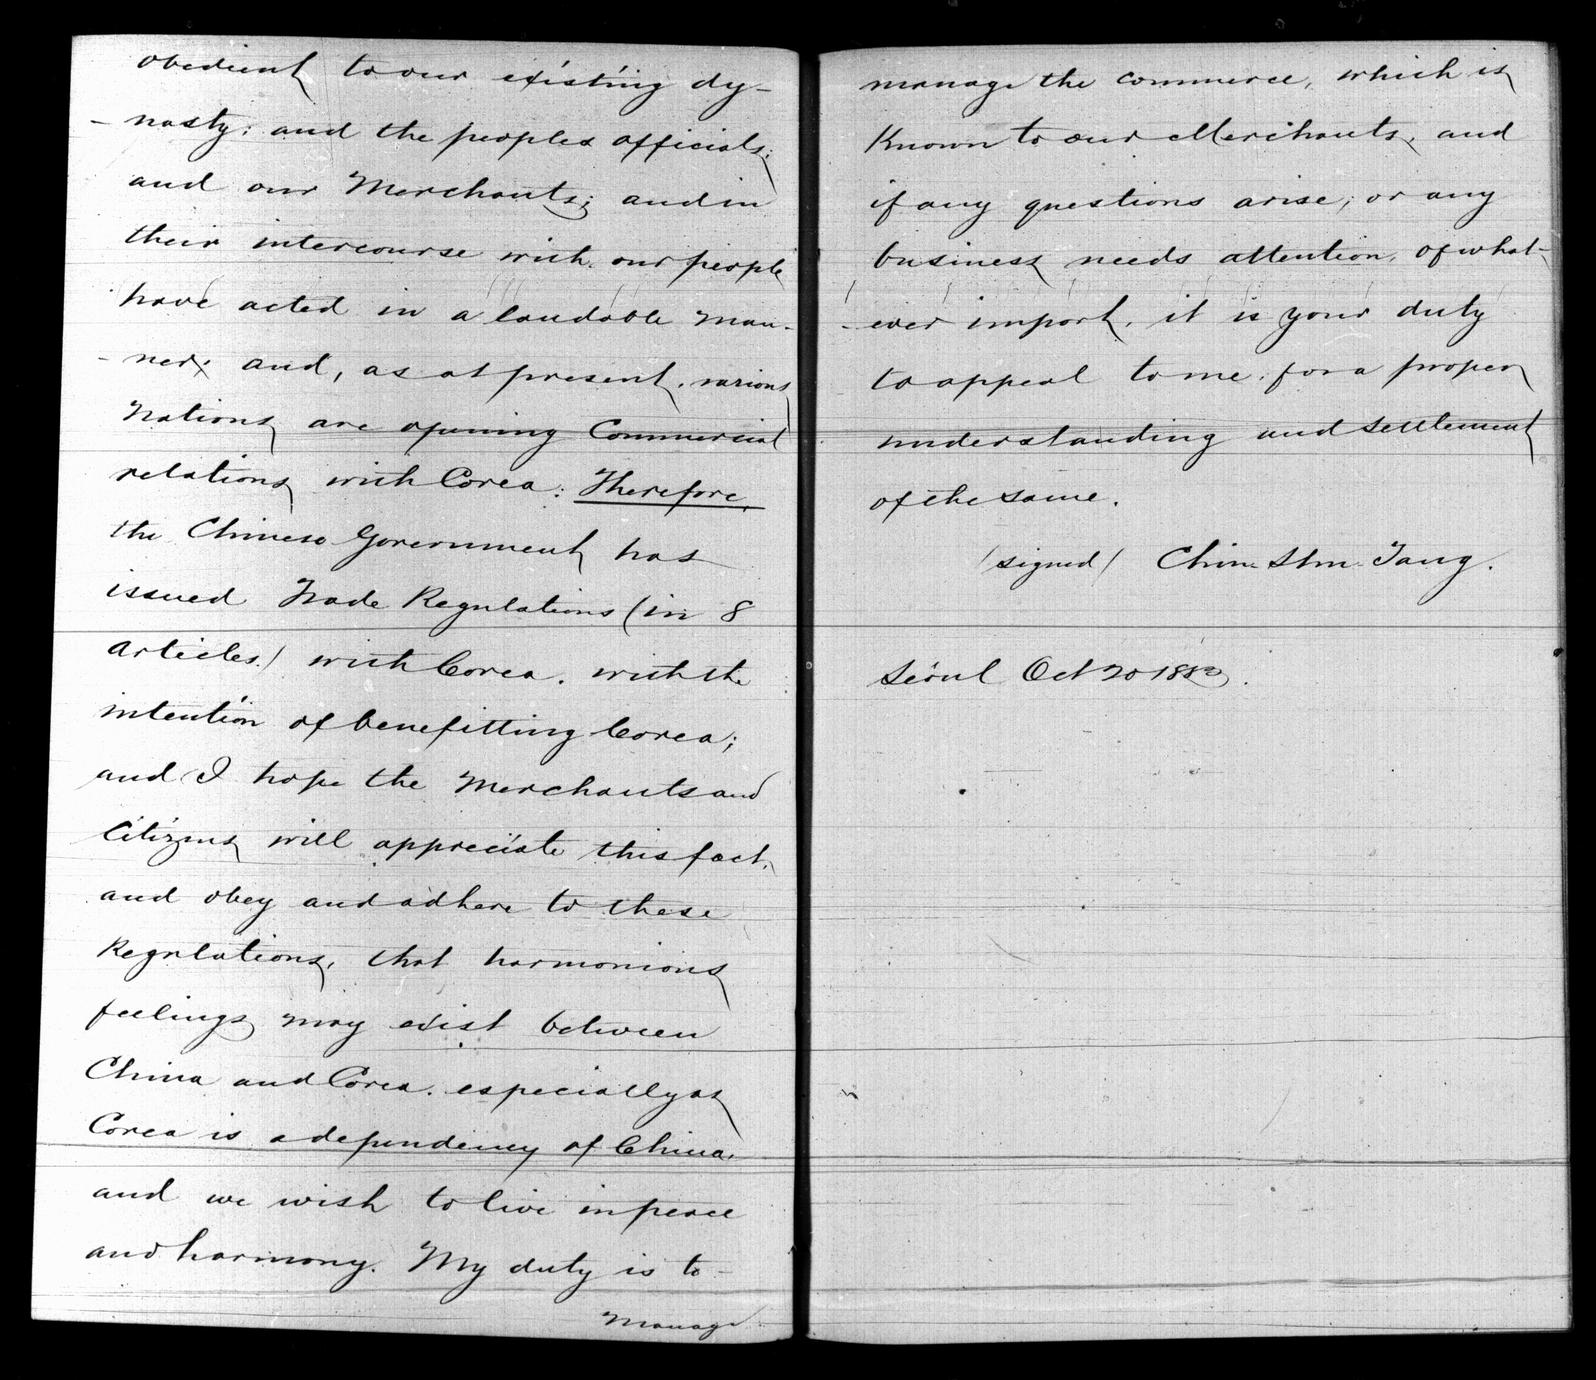 obedient to our existing dy-
-nasty; and the peoples officials;
and our Merchants; and in
their intercourse with our people
have acted in a laudable man-
-ner; and, as at present, various
Nations are opening Commercial
relations with Corea: Therefore,
the Chinese Government has
issued Trade Regulations (in 8
articles.) with Corea. with the
intention of benefitting Corea;
and I hope the Merchants and
Citizens will appreciate this fact,
and obey and adhere to these
Regulations, that harmonious
feelings may exist between
China and Corea. especially as
Corea is a dependency of China.
and we wish to live in peace
and harmony. My duty is to-
manage
manage the commerce, which is
Known to our Merchants, and
if any questions arise, or any
business needs attention, of what-
-ever import, it is your duty
to appeal to me for a proper
understanding and settlement
of the same.
(signed) Chin Shu Tang.
Seoul Oct 20 1883.